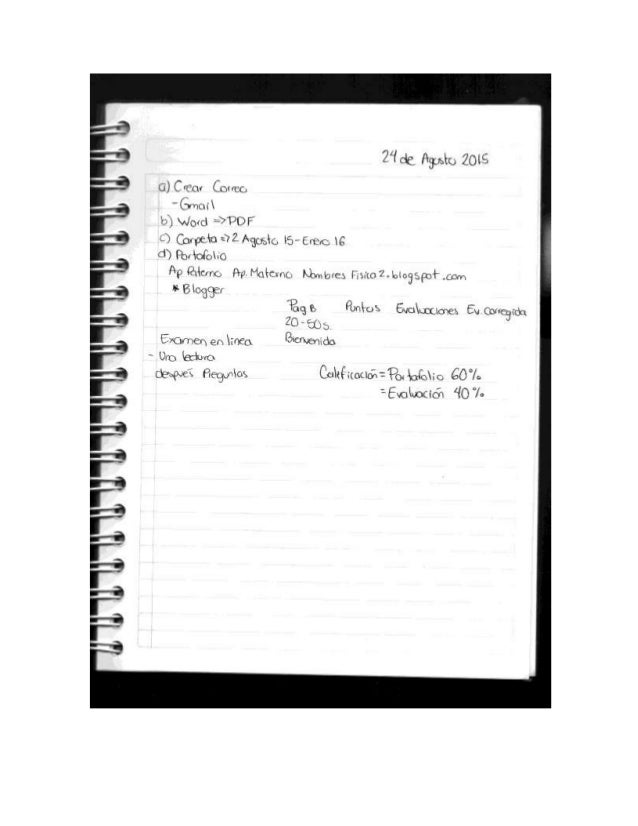 24 de Agosto 2015
a) Crear Correo
- Gmail
b) Word => PDF
c) Carpeta => 2 Agosto 15 - Enero 16
d) Portafolio
Ap. Paterno Ap. Materno Nombres Fisica 2. blogspot .com
* Blogger
Pag B Puntos Evaluaciones Ev. corregida
20 - 50 s.
Examen en linea Bienvenida
- Una lectura
después Preguntas Calificación = Portafolio 60%
= Evaluación 40%